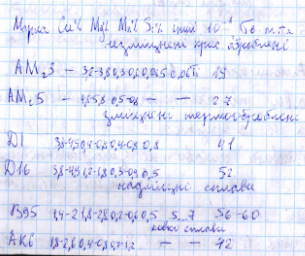 Марка Cu% Mg% Mn% Si% інші 10⁻¹ Gв МПа
зміцнені
АМц3 – 19
АМц5 – – 27
зміцнені термообробкою
Д1 3,8-4,5 0,4-0,8 0,4-0,8 0,8 41
Д16 3,8-4,5 1,2-1,8 0,3-0,9 0,5 52
надміцні сплави
В95 1,4-2 1,8-2,8 0,2-0,6 0,5 5..7 56-60
ковкі сплави
АК6 1,8-2,6 0,4-0,8 0,7-1,2 – – 42